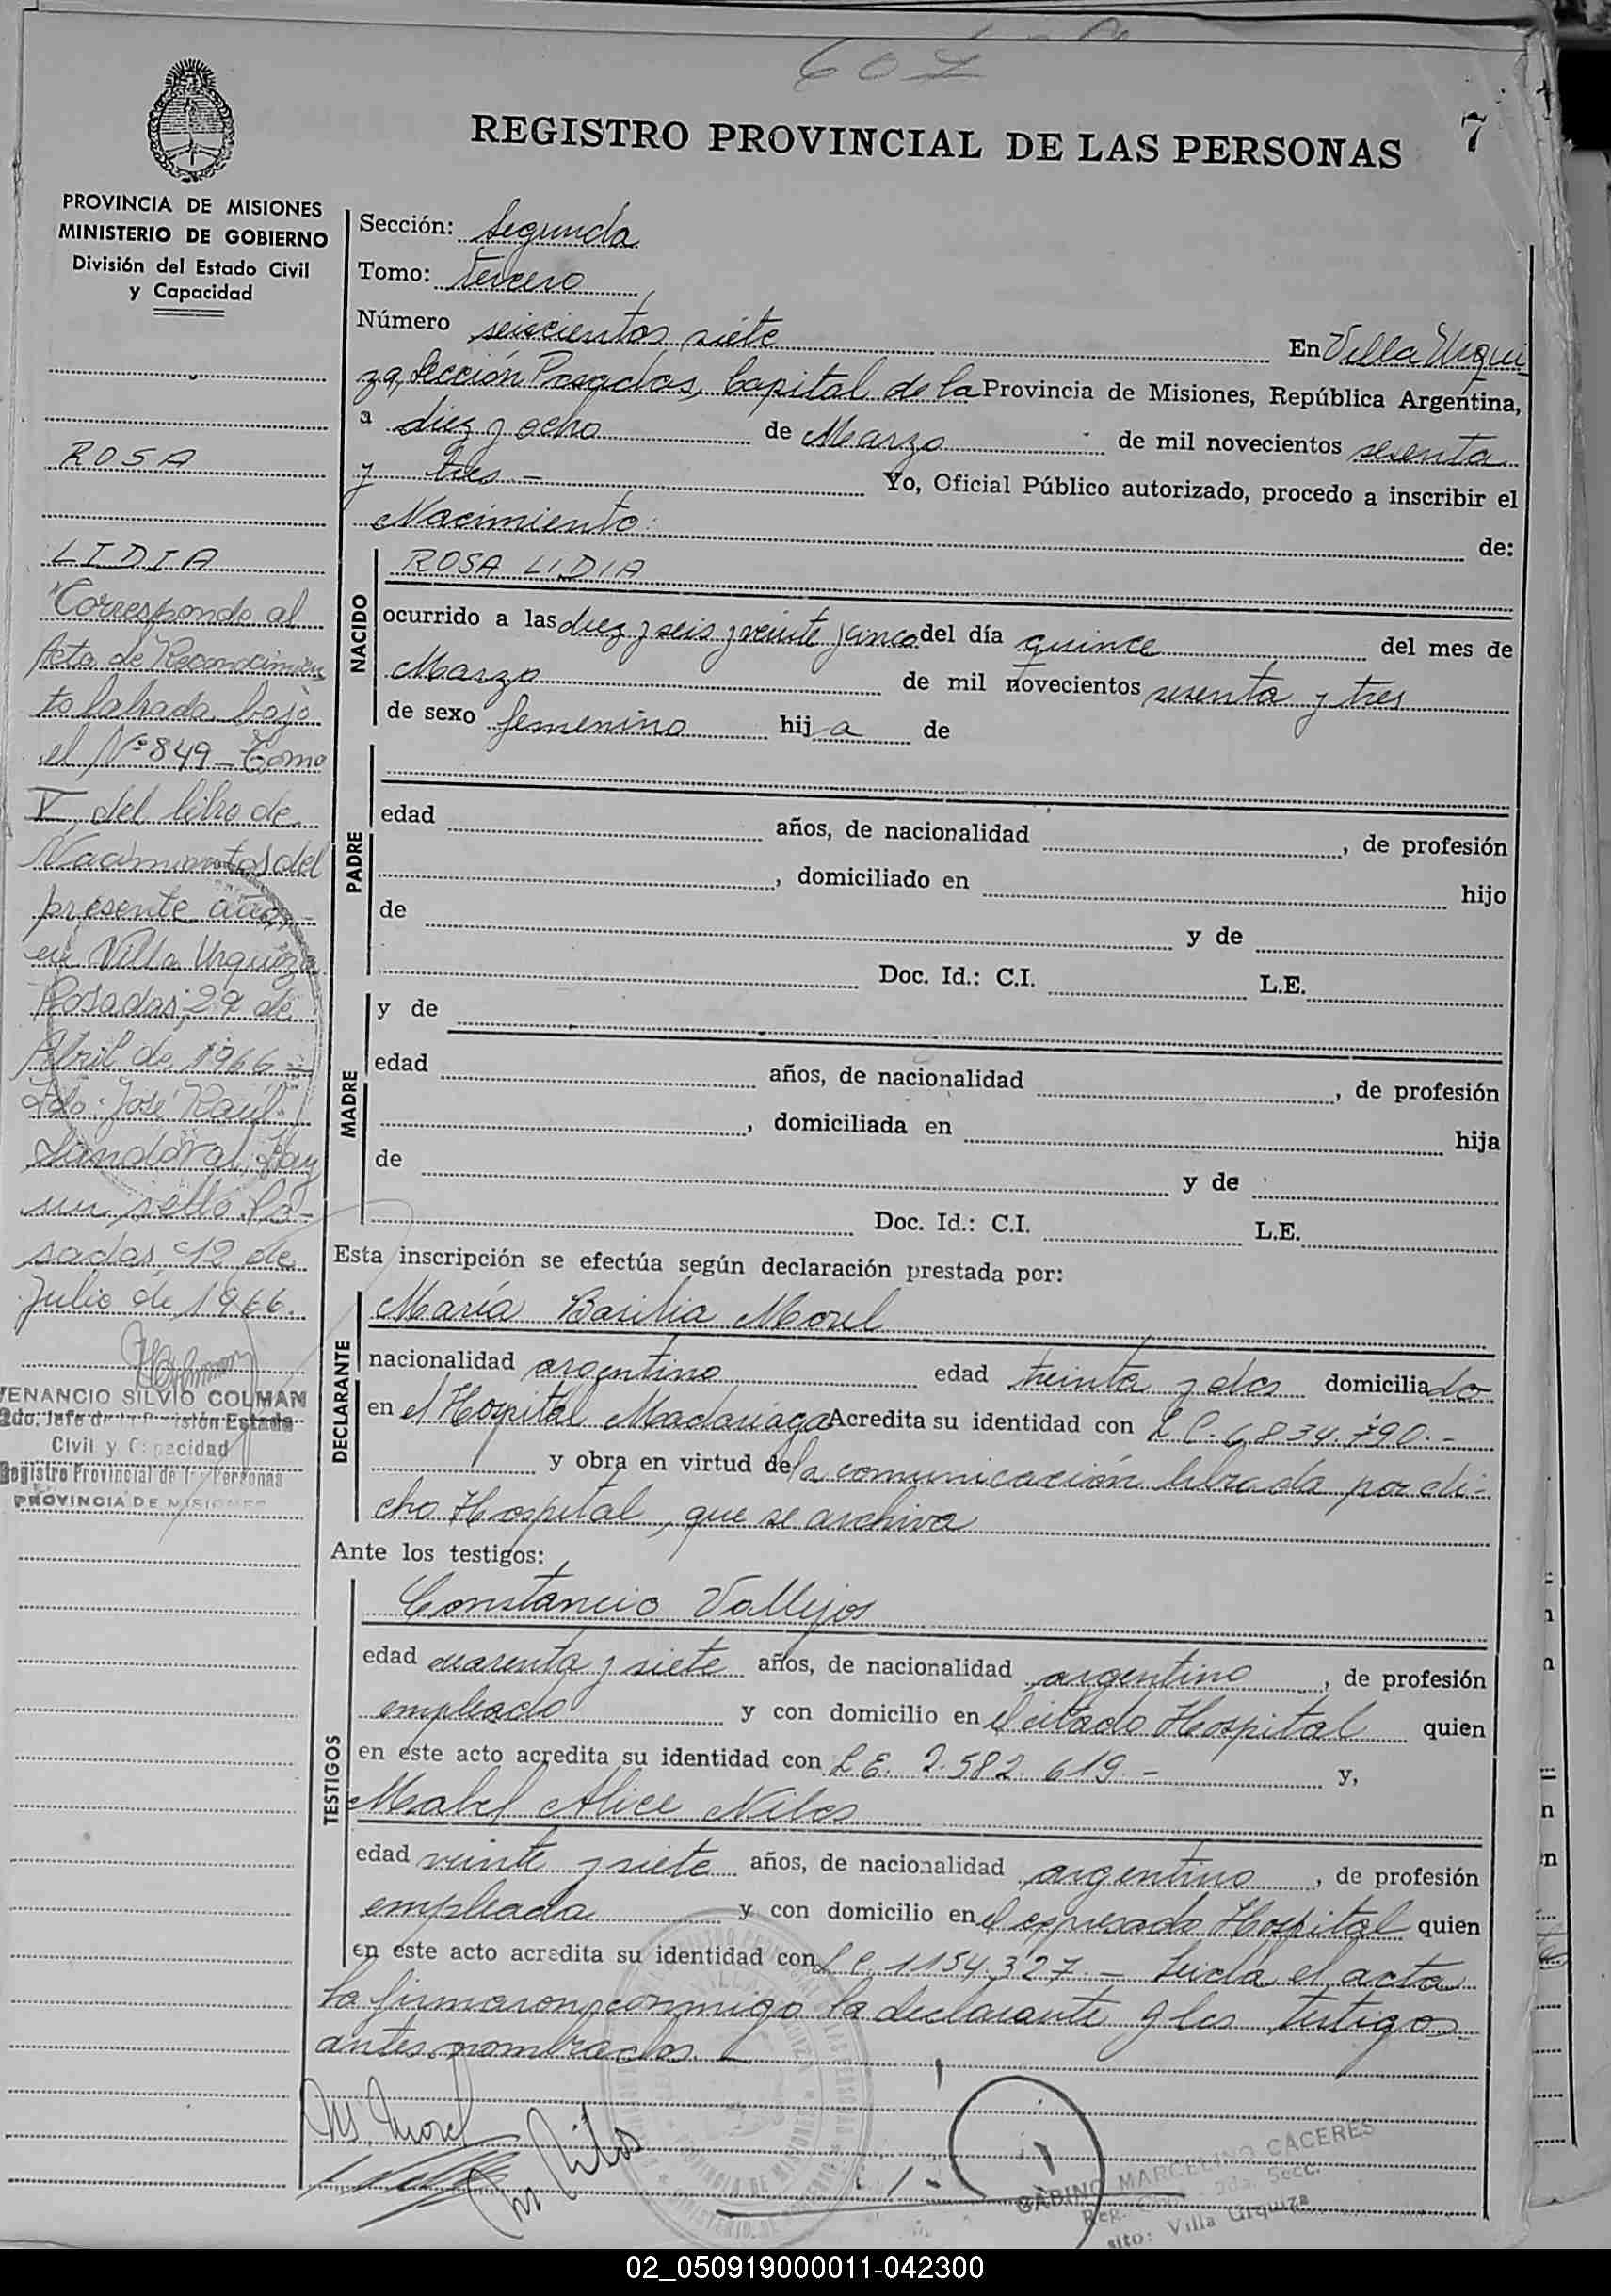 607
7
REGISTRO PROVINCIAL DE LAS PERSONAS
PROVINCIA DE MISIONES
MINISTERIO DE GOBIERNO
División del Estado Civil
y Capacidad
ROSA
LIDIA
"Corresponde al
Acta de Reconocimien
to labrada bajo
el Nº 849 - Tomo
V, del libro de
Nacimientos del
presente año,
en Villa Urquiza
Posadas, 29 de
Abril de 1966 =
Fdo: José Raúl
Sandoval. Hay
un sello. Po-
sadas 12 de
Julio de 1966.
VENANCIO SILVIO COLMAN
2do. Jefe de la División Estado
Civil y Capacidad
Registro Provincial de las Personas
PROVINCIA DE MISIONES
Sección: Segunda
Tomo: Tercero
Número seiscientos siete En Villa Urqui
za, Sección Posadas, Capital de la Provincia de Misiones, República Argentina,
a diez y ocho de Marzo de mil novecientos sesenta
y tres - Yo, Oficial Público autorizado, procedo a inscribir el
Nacimiento de:
NACIDO
ROSA LIDIA
ocurrido a las diez y seis y veinte y cinco del día quince del mes de
Marzo de mil novecientos sesenta y tres
de sexo femenino hij a de
PADRE
edad años, de nacionalidad , de profesión
, domiciliado en hijo
de y de
Doc. Id.: C.I. L.E.
MADRE
y de
edad años, de nacionalidad , de profesión
, domiciliada en hija
de y de
Doc. Id.: C.I. L.E.
Esta inscripción se efectúa según declaración prestada por:
DECLARANTE
María Basilia Morel
nacionalidad argentina edad treinta y dos domicilia da
en el Hospital Madariaga Acredita su identidad con L C. 6.834.790.-
y obra en virtud de la comunicación librada por di-
cho Hospital, que se archiva
Ante los testigos:
TESTIGOS
Constancio Vallejos
edad cuarenta y siete años, de nacionalidad argentino , de profesión
empleado y con domicilio en el citado Hospital quien
en este acto acredita su identidad con L E. 2.582.619.- y,
Mabel Alice Niles
edad veinte y siete años, de nacionalidad argentina , de profesión
empleada y con domicilio en el expresado Hospital quien
en este acto acredita su identidad con L C. 1154.327 - Leída el acta
la firmaron conmigo la declarante y los testigos
antes nombrados. -
M Morel
M Niles
GABINO MARCELINO CACERES
2da. Secc.
sito: Villa Urquiza
02_050919000011-042300